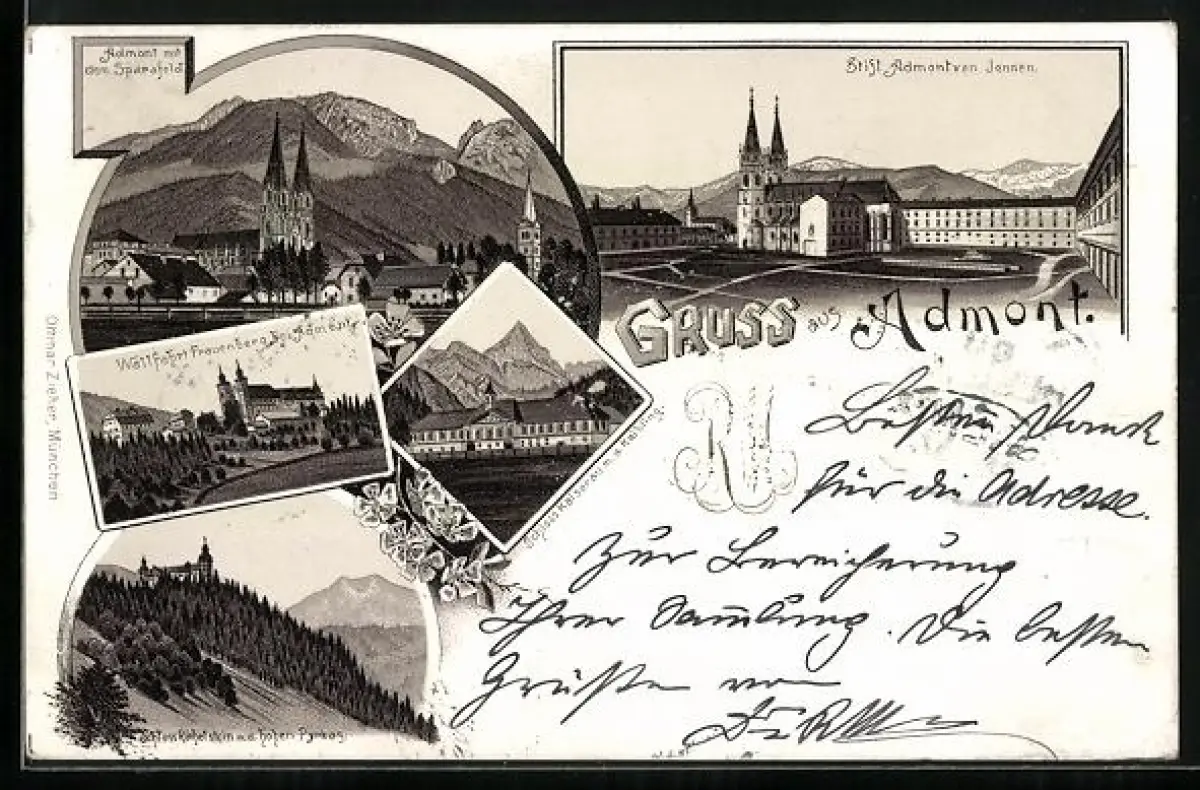 Admont mit
dem Sparafeld
Stift Admont von Jnnen.
GRUSS aus Admont.
Wallfahrt Frauenberg bei Admont
Schloss Kaiserau m. d. Kalbling.
Ottmar Zieher, München
Besten Dank
für die Adresse.
Zur Bereicherung
Ihrer Sammlung. Die besten
Grüße von
Schloss Röthelstein m. d. hohen Pyrhgas